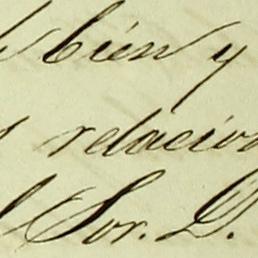 bien y
relacion
Sor. D.